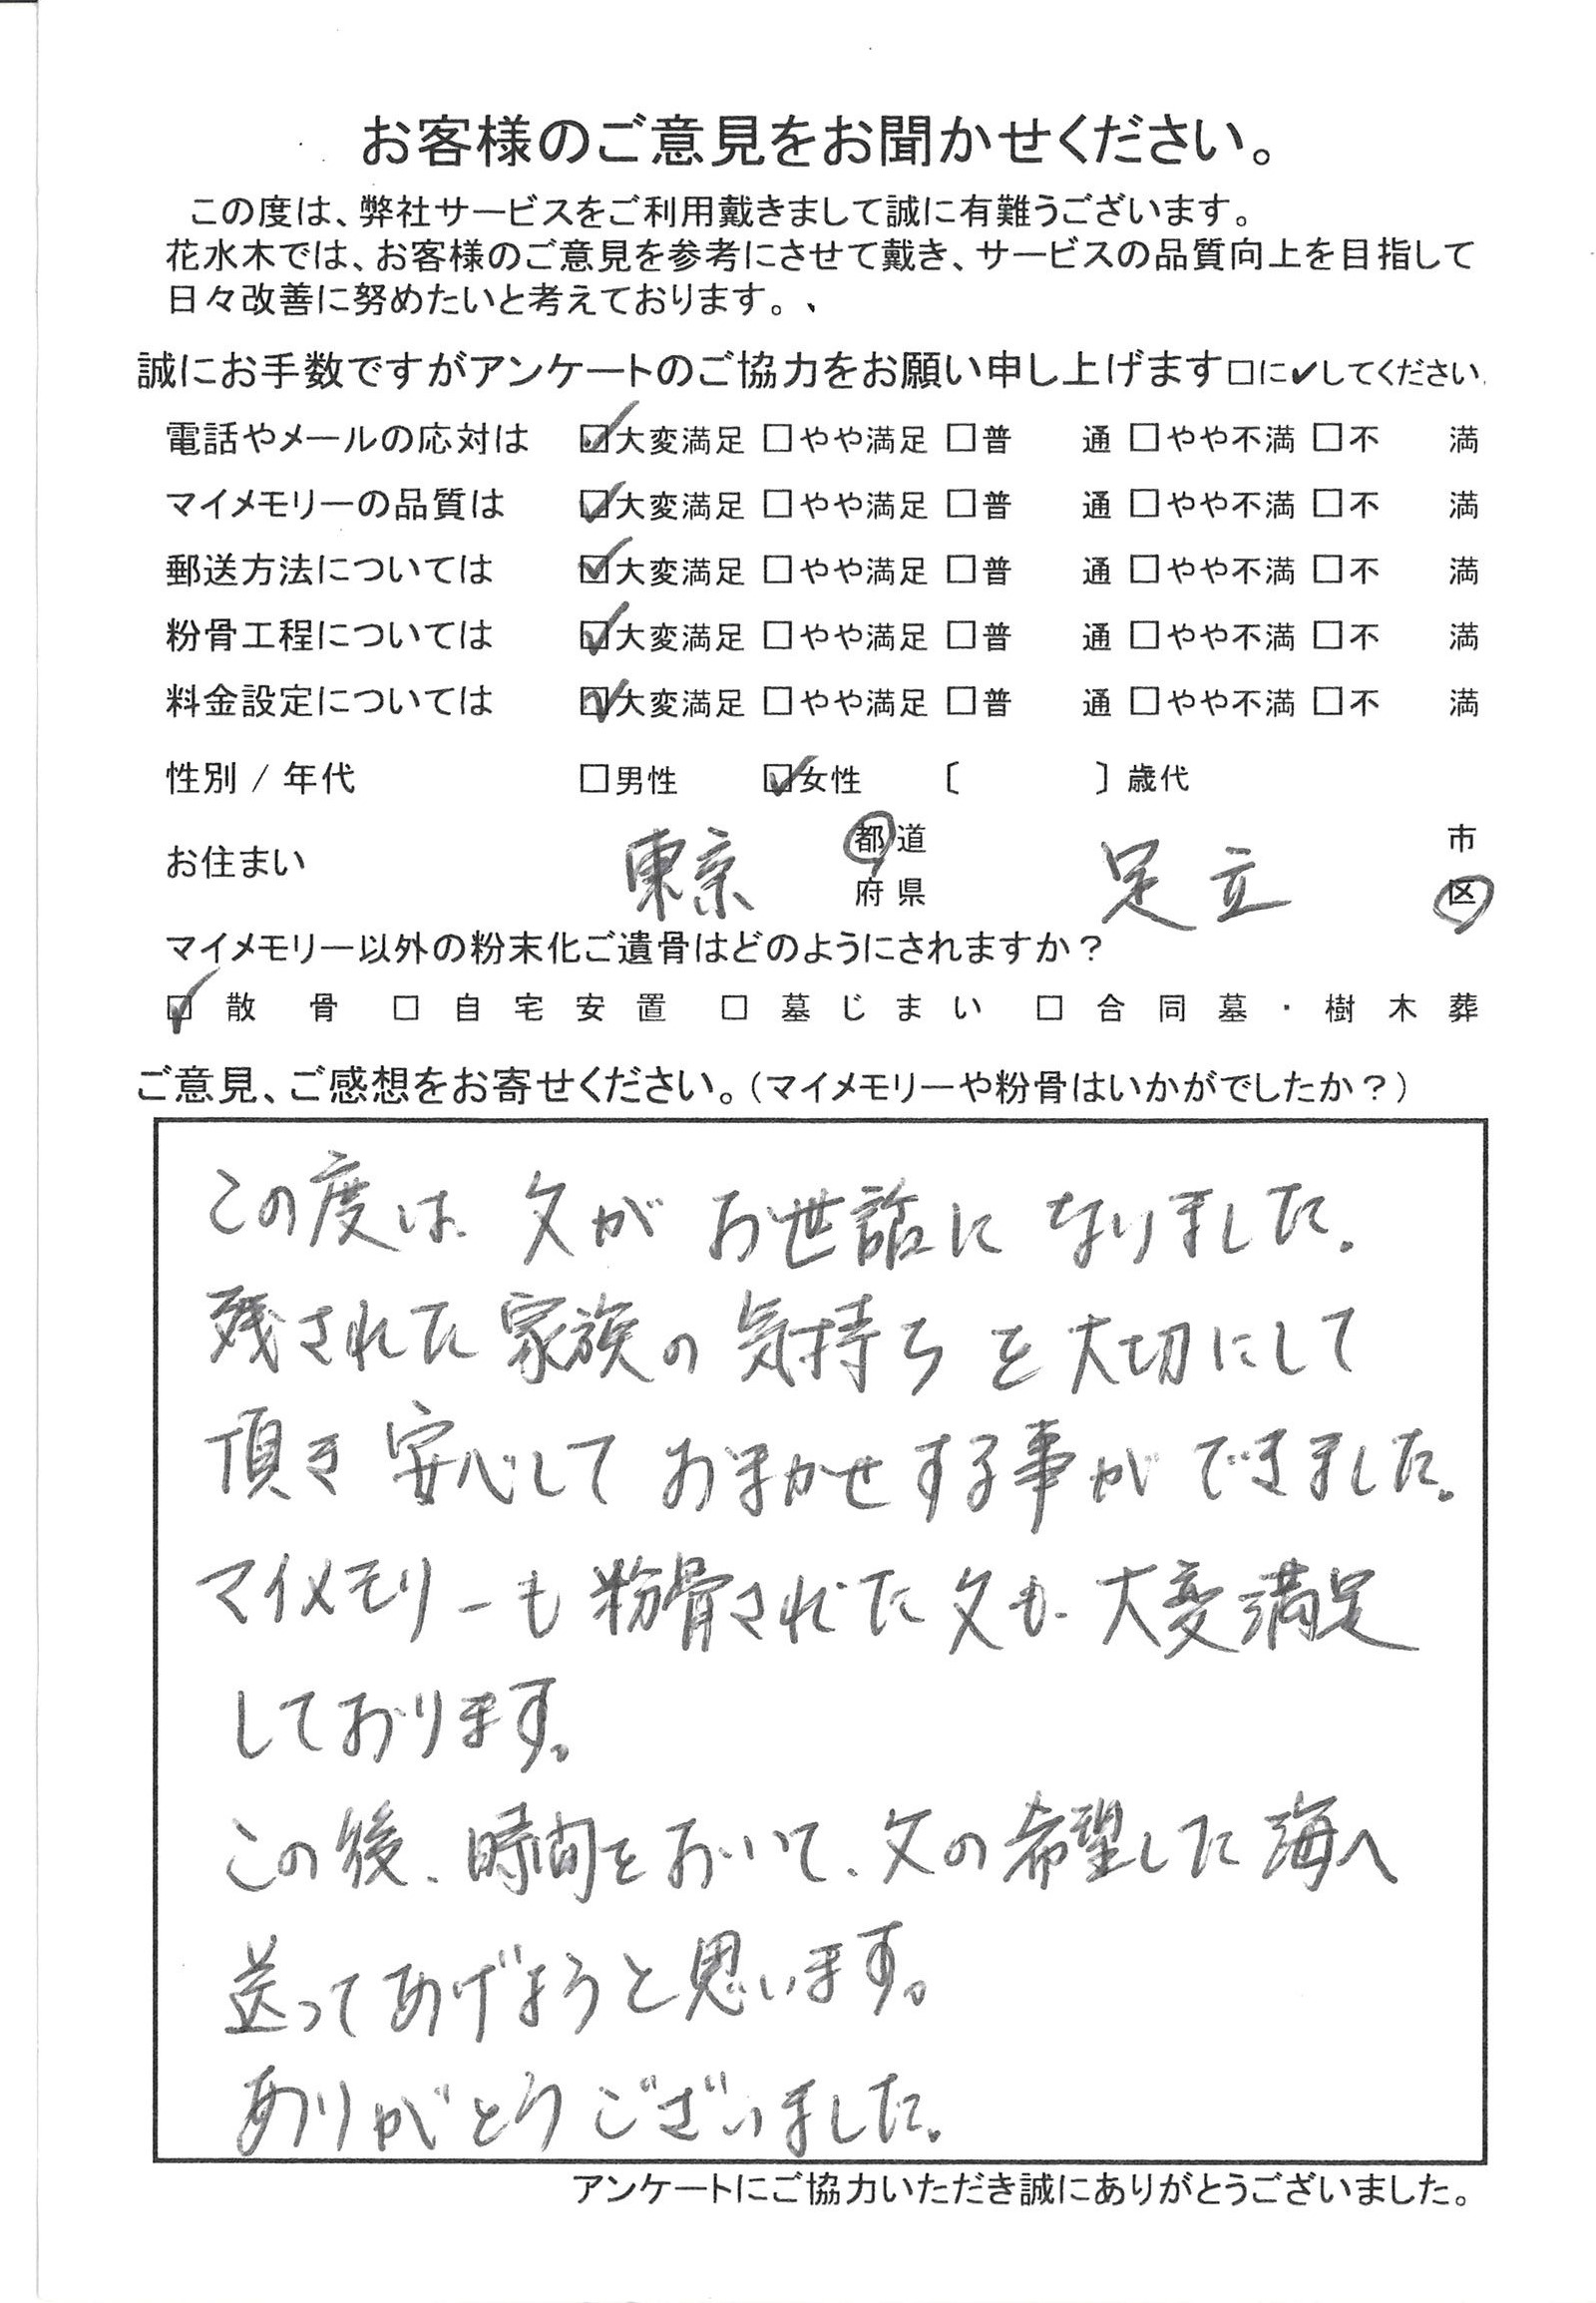 お客様のご意見をお聞かせください。
この度は、弊社サービスをご利用戴きまして誠に有難うございます。
花水木では、お客様のご意見を参考にさせて戴き、サービスの品質向上を目指して
日々改善に努めたいと考えております。、
誠にお手数ですがアンケートのご協力をお願い申し上げます□に✔してください
電話やメールの応対は ☑大変満足 □やや満足 □普 通 □やや不満 □不 満
マイメモリーの品質は ☑大変満足 □やや満足 □普 通 □やや不満 □不 満
郵送方法については ☑大変満足 □やや満足 □普 通 □やや不満 □不 満
粉骨工程については ☑大変満足 □やや満足 □普 通 □やや不満 □不 満
料金設定については ☑大変満足 □やや満足 □普 通 □やや不満 □不 満
性別 / 年代 □男性 ☑女性 〔 〕歳代
お住まい 東京 都道府県 足立 市区
マイメモリー以外の粉末化ご遺骨はどのようにされますか？
☑ 散骨 □ 自宅安置 □ 墓じまい □ 合同墓・樹木葬
ご意見、ご感想をお寄せください。（マイメモリーや粉骨はいかがでしたか？）
この度は、父が お世話に なりました。
残された家族の気持ちを大切にして
頂き安心しておまかせする事ができました。
マイメモリーも粉骨された父も、大変満足
しております。
この後、時間をおいて、父の希望した海へ
送ってあげようと思います。
ありがとうございました。
アンケートにご協力いただき誠にありがとうございました。